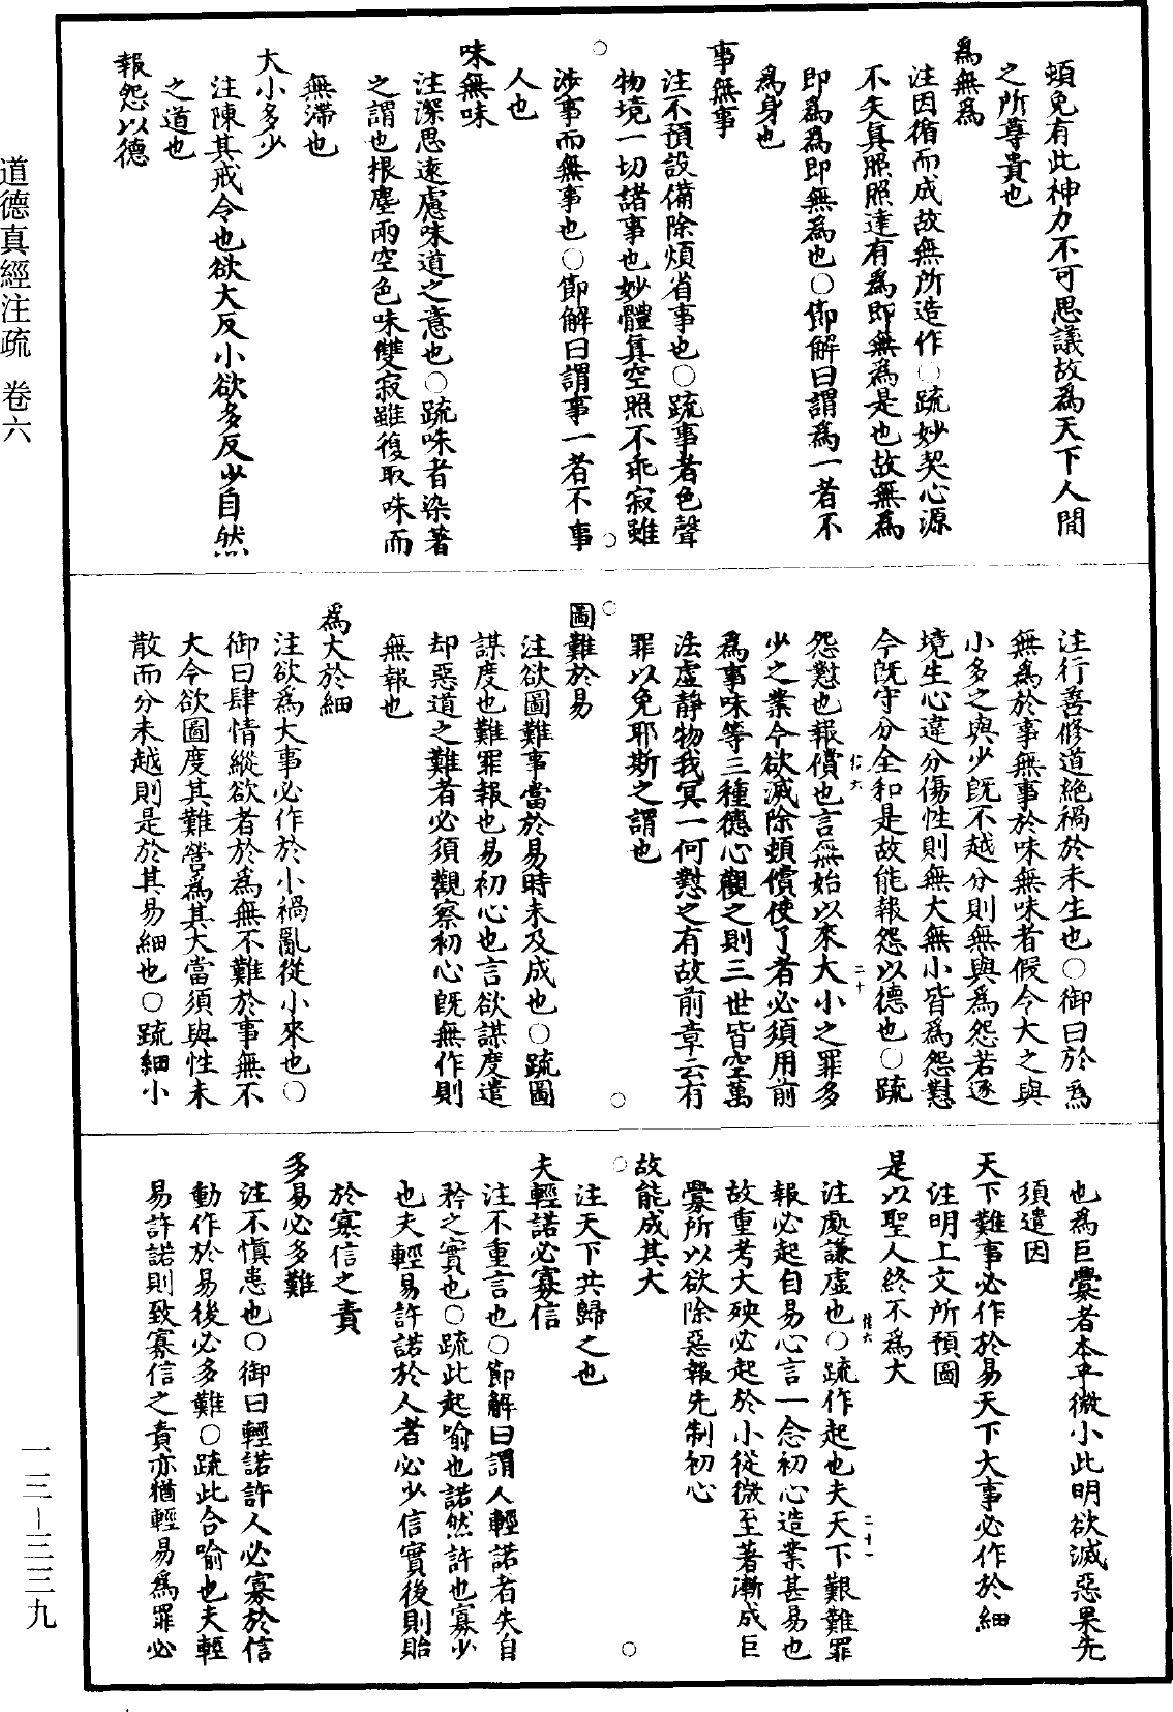 頓免有此神力不可思議故為天下人間
之所尊貴也
為無為
注因循而成故無所造作○疏妙契心源
不失真照照達有為即無為是也故無為
即為為即無為也○節解曰謂為一者不
為身也
事無事
注不預設備除煩省事也○疏事者色聲
物境一切諸事也妙體真空照不乖寂雖
涉事而無事也○節解曰謂事一者不事
人也
味無味
注深思遠慮味道之意也○疏味者染著
之謂也根塵兩空色味雙寂雖復取味而
無滯也
大小多少
注陳其戒令也欲大反小欲多反少自然
之道也
報怨以德
注行善修道絕禍於未生也○御曰於為
無為於事無事於味無味者假令大之與
小多之與少既不越分則無與為怨若逐
境生心違分傷性則無大無小皆為怨懟
今既守分全和是故能報怨以德也○疏
怨懟也報償也言無始以來大小之罪多
少之業今欲滅除頓償使了者必須用前
為事味等三種德心觀之則三世皆空萬
法虛靜物我冥一何懟之有故前章云有
罪以免耶斯之謂也
圖難於易
注欲圖難事當於易時未及成也○疏圖
謀度也難罪報也易初心也言欲謀度遣
却惡道之難者必須觀察初心既無作則
無報也
為大於細
注欲為大事必作於小禍亂從小來也○
御曰肆情縱欲者於為無不難於事無不
大今欲圖度其難營為其大當須與性未
散而分未越則是於其易細也○疏細小
也為巨釁者本乎微小此明欲滅惡果先
須遣因
天下難事必作於易天下大事必作於細
注明上文所預圖
是以聖人終不為大
注處謙虛也○疏作起也夫天下艱難罪
報必起自易心言一念初心造業甚易也
故重考大殃必起於小從微至著漸成巨
釁所以欲除惡報先制初心
故能成其大
注天下共歸之也
夫輕諾必寡信
注不重言也○節解曰謂人輕諾者失自
矜之實也○疏此起喻也諾然許也寡少
也夫輕易許諾於人者必少信實後則貽
於寡信之責
多易必多難
注不慎患也○御曰輕諾許人必寡於信
動作於易後必多難○疏此合喻也夫輕
易許諾則致寡信之責亦猶輕易為罪必
道德真經注疏 卷六
一三－三三九